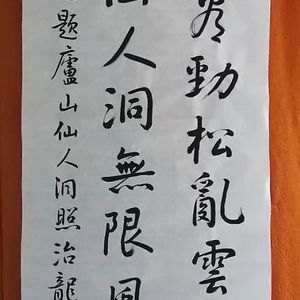 看勁松亂雲
仙人洞無限風
題廬山仙人洞照治龍